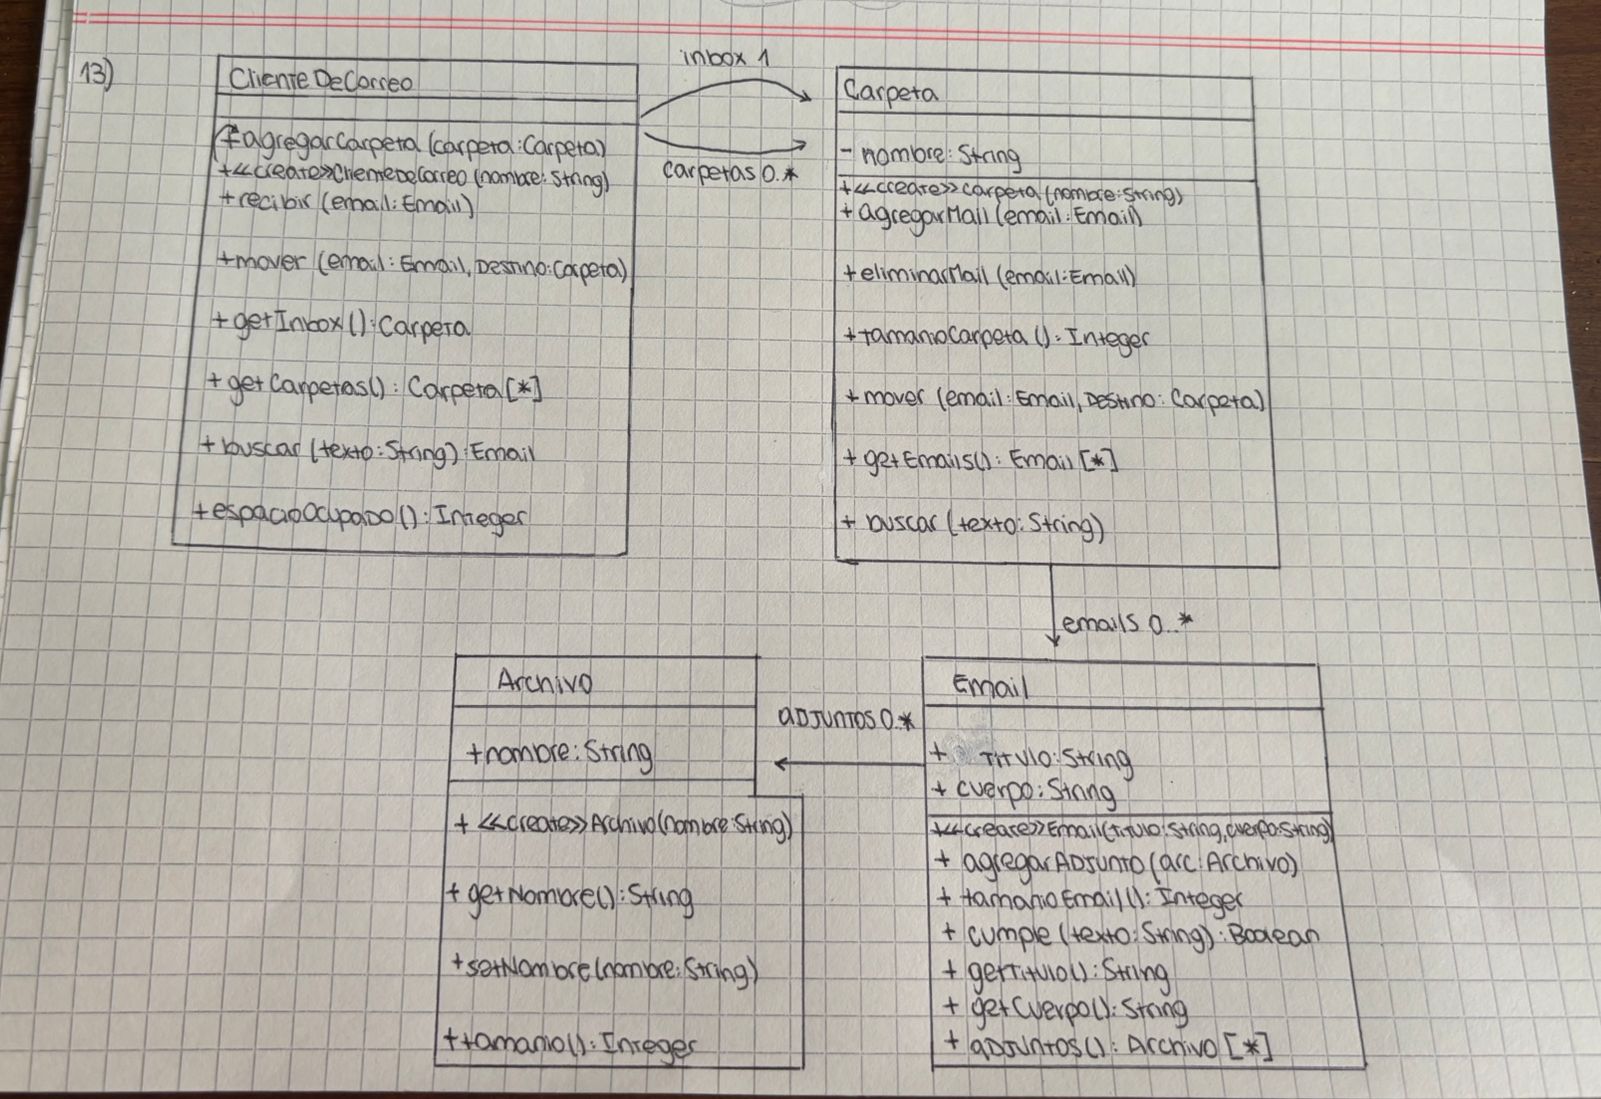 13)
ClienteDeCorreo
+agregarCarpeta (carpeta:Carpeta)
+<<create>>ClienteDeCorreo (nombre: String)
+recibir (email:Email)
+mover (email: Email, Destino:Carpeta)
+getInbox():Carpeta
+getCarpetas(): Carpeta[*]
+buscar (texto:String):Email
+espacioOcupado(): Integer
inbox 1
carpetas 0..*
Carpeta
- nombre: String
+<<create>>carpeta (nombre:String)
+agregarMail (email:Email)
+eliminarMail (email:Email)
+tamanioCarpeta (): Integer
+mover (email: Email, Destino: Carpeta)
+getEmails(): Email [*]
+ buscar (texto: String)
emails 0..*
Archivo
+nombre: String
+ <<create>>Archivo(nombre:String)
+getNombre():String
+setNombre(nombre:String)
+tamanio(): Integer
ADJuntos 0..*
Email
+ Titulo:String
+ cuerpo: String
+<<create>>Email(Titulo:String,cuerpo:String)
+ agregarADJunto (arc: Archivo)
+ tamanioEmail(): Integer
+ cumple (texto:String): Boolean
+ getTitulo(): String
+ getCuerpo(): String
+ ADJuntos(): Archivo [*]